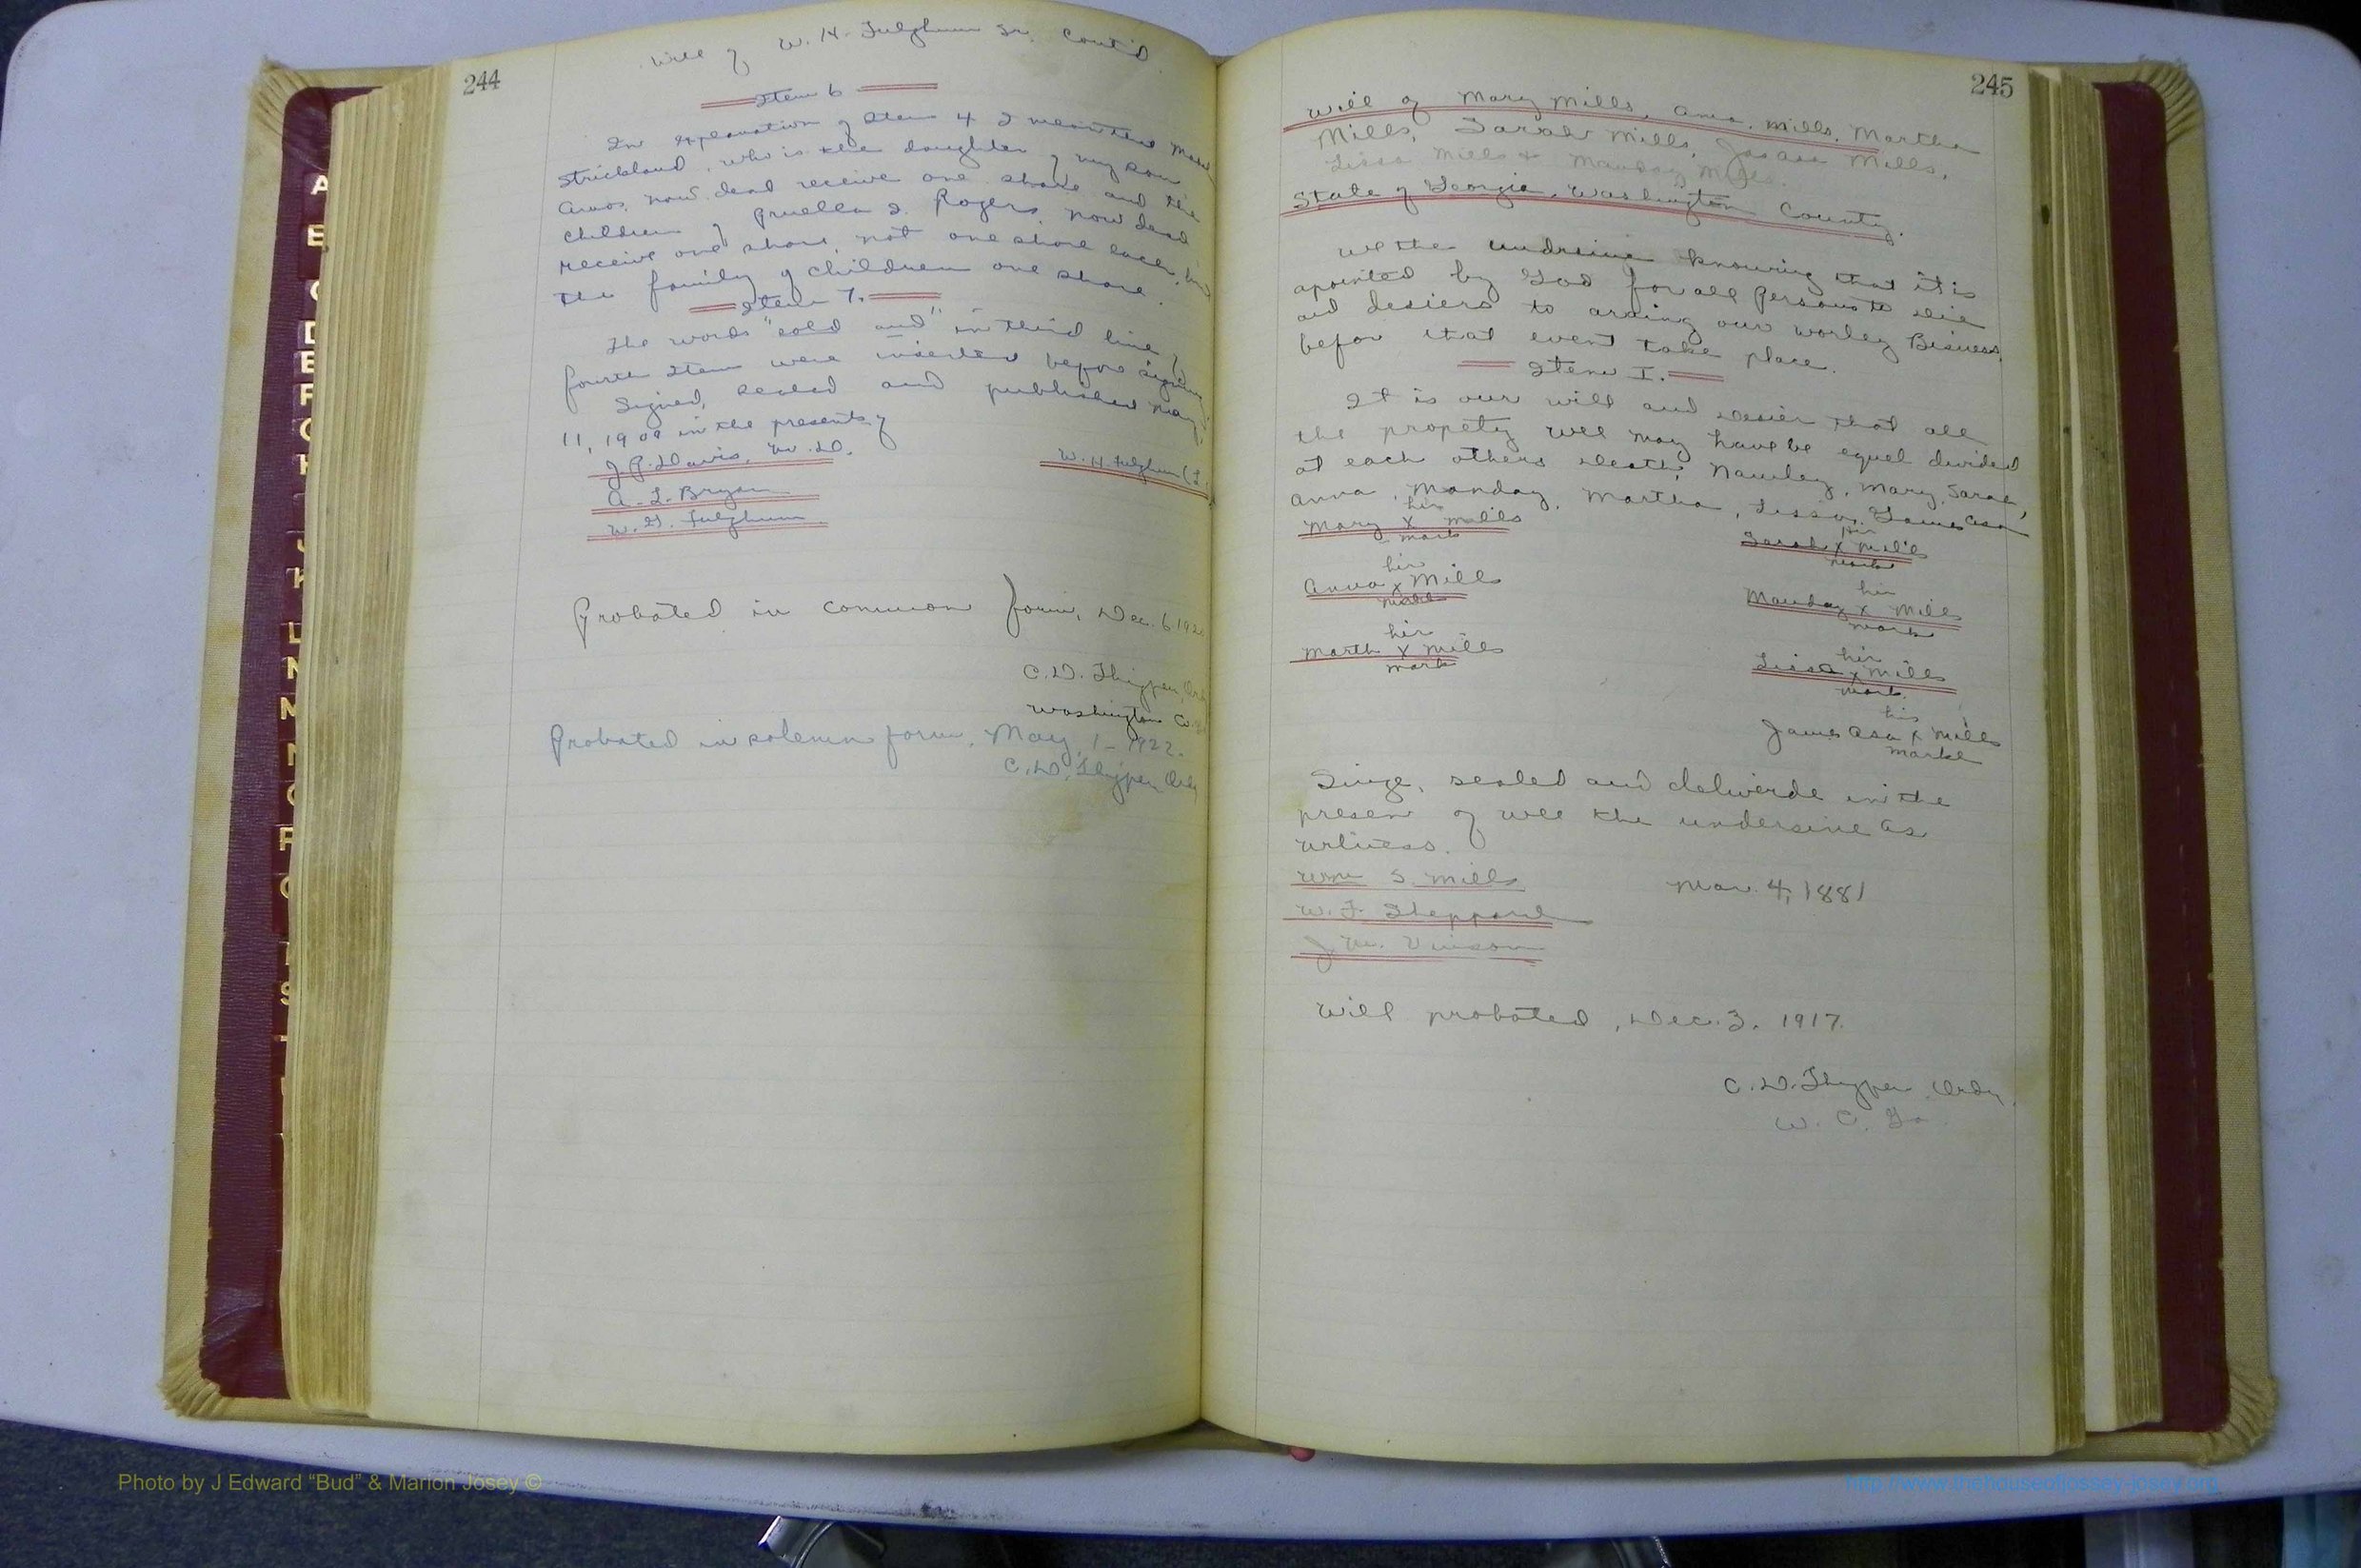 244
Will of W. H. Fulghum Sr. Cont'd
Item 6
In explanation of Item 4 I mean that
Strickland, who is the daughter of my son
Amos, now dead receive one share and the
children of Pruella I. Rogers, now dead
receive one share, not one share each, but
the family of children one share.
Item 7.
The words "sold and" in third line of
fourth Item were inserted before signing.
Signed, sealed and published May
11, 1909 in the presents of
J. R. Davis, M. D.
W. H. Fulghum (L.
A. L. Bryan
W. G. Fulghum
Probated in common form, Dec. 6, 192
C. D. Thigpen, Ord
Washington Co.
Probated in solemn form, May, 1 - 1922.
C. D. Thigpen, Ord
245
Will of Mary Mills, Anna Mills, Martha
Mills, Sarah Mills, Jas Asa Mills,
Lissa Mills & Manday Mills.
State of Georgia, Washington County.
We the undrsine knowing that it is
apointed by God for all persons to die
and desiers to araing our worley Bisiness
befor that event take place.
Item I.
It is our will and desier that all
the propety wee may have be equel divided
at each others death, Namley, Mary, Sarah,
Anna, Manday, Martha, Lissa, James Asa
her
Mary X Mills
mark
her
Sarah X Mills
mark
her
Anna X Mills
mark
her
Manday X Mills
mark
her
Marth X Mills
mark
her
Lissa X Mills
mark
his
James Asa X Mills
marke
Singe, sealed and deliverde in the
present of wee the undersine as
witness.
Wm S. Mills
Mar. 4, 1881
W. F. Sheppard
J. M. Vinson
Will probated, Dec. 3, 1917.
C. D. Thigpen, Ordy.
W. C. Ga
Photo by J Edward “Bud” & Marion Josey ©
http://www.thehouseofjossey-josey.org